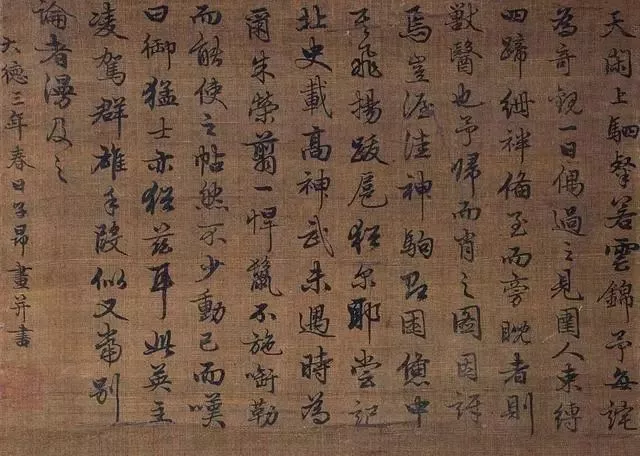 天閑上駟羣若雲錦予每詫
為奇觀一日偶過之見圉人束縛
四蹄紲袢備至而旁睨者則
獸醫也予歸而肖之圖因訝
焉豈渥洼神駒困中
飛揚跋扈猶尔耶嘗記
北史載高神武未遇時為
爾朱榮翦一悍鬣不施銜勒
而能使之帖然不少動已而嘆
曰御猛士亦猶茲耳此英主
凌駕群雄手段似又當別
論者漫及之
大德三年春日子昂畫并書